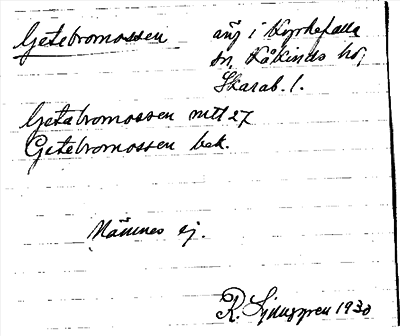 Getebromossen äng i Kyrkefalla
sn, Kåkinds hd,
Skarab. l.
Getabromossen mtt 27
Getebromossen bek.
Nämnes ej.
R. Ljunggren 1930